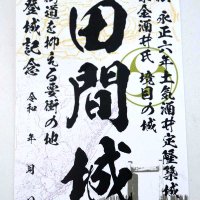 永正六年土気酒井定隆築城
東金酒井氏 境目の城
田間城
街道を抑える要衝の地
登城記念
令和 年 月